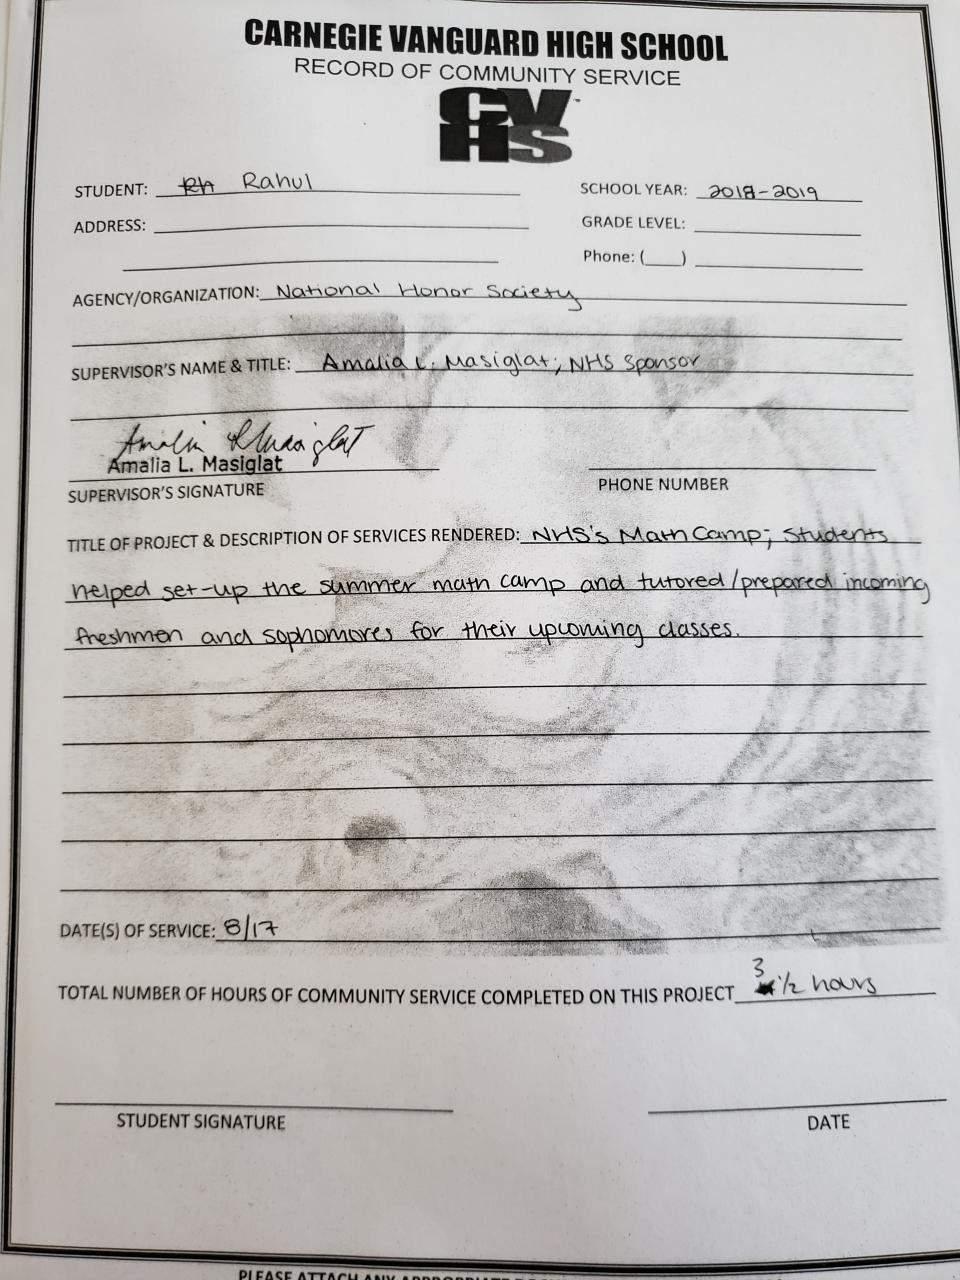 CARNEGIE VANGUARD HIGH SCHOOL
RECORD OF COMMUNITY SERVICE
CV
HS
STUDENT: Rahul SCHOOL YEAR: 2018-2019
ADDRESS: GRADE LEVEL:
Phone: (___)
AGENCY/ORGANIZATION: National Honor Society
SUPERVISOR'S NAME & TITLE: Amalia L. Masiglat; NHS Sponsor
Amalia L Masiglat
Amalia L. Masiglat
SUPERVISOR'S SIGNATURE PHONE NUMBER
TITLE OF PROJECT & DESCRIPTION OF SERVICES RENDERED: NHS's Math Camp; Students
helped set-up the summer math camp and tutored/prepared incoming
freshmen and sophomores for their upcoming classes.
DATE(S) OF SERVICE: 8/17
TOTAL NUMBER OF HOURS OF COMMUNITY SERVICE COMPLETED ON THIS PROJECT 3 1/2 hours
STUDENT SIGNATURE DATE
PLEASE ATTACH ANY